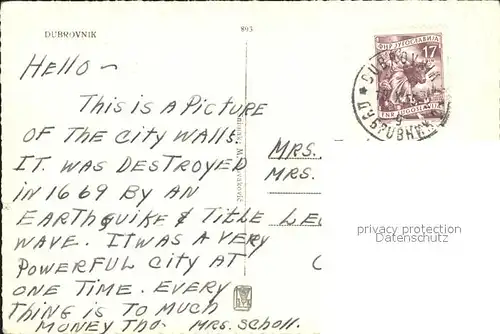 DUBROVNIK
893
HELLO ~
THIS IS A PICTURE
OF THE CITY WALLS.
IT. WAS DESTROYED
IN 1669 BY AN
EARTHQUIKE & TITLE
WAVE. IT WAS A VERY
POWERFUL CITY AT
ONE TIME. EVERY
THING IS TO MUCH
MONEY THO. MRS. SCHOLL.
MRS.
MRS.
LE
ФНР ЈУГОСЛАВИЈА
17
FNR JUGOSLAVIJA
DUBROVNIK
ДУБРОВНИК
privacy protection
Datenschutz